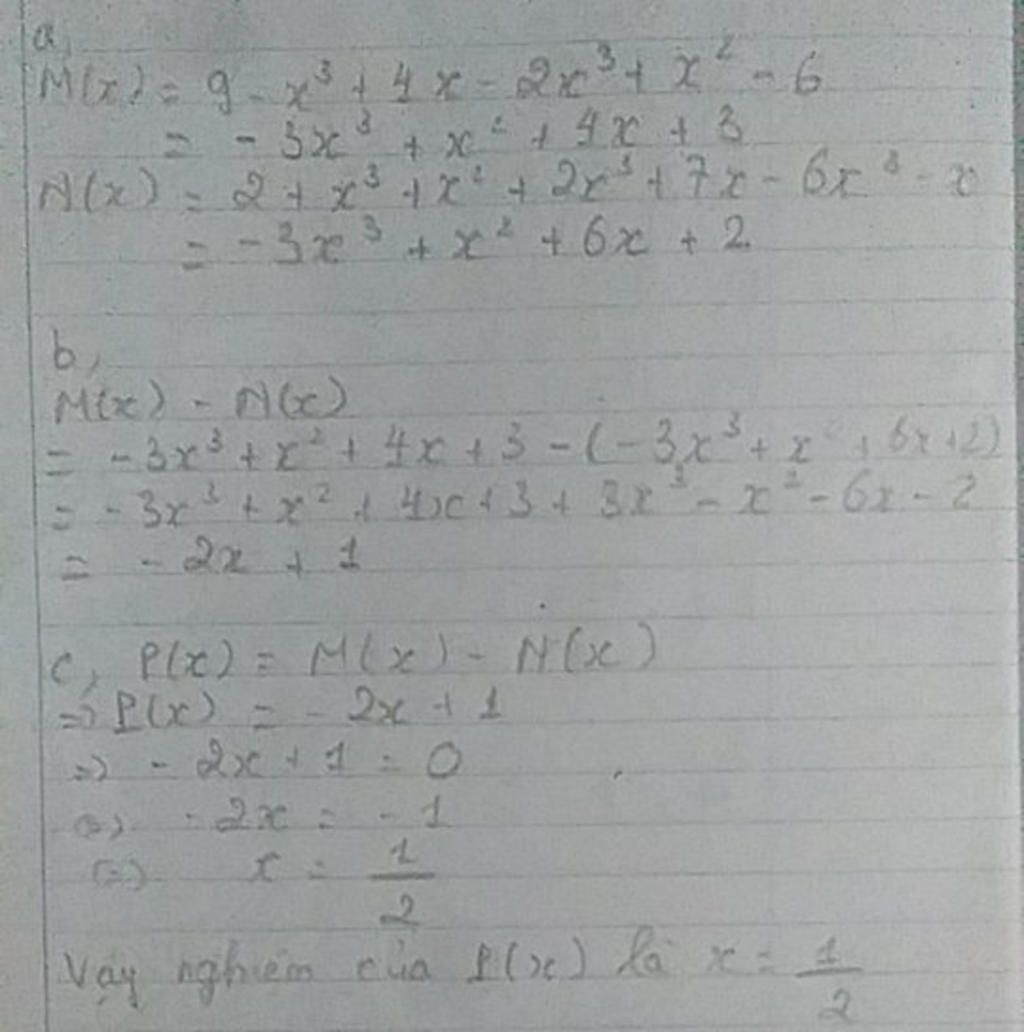 a,
M(x) = 9 - x³ + 4x - 2x³ + x² - 6
= -3x³ + x² + 4x + 3
N(x) = 2 + x³ + x² + 2x³ + 7x - 6x³ - x
= -3x³ + x² + 6x + 2
b,
M(x) - N(x)
= -3x³ + x² + 4x + 3 - (-3x³ + x² + 6x + 2)
= -3x³ + x² + 4x + 3 + 3x³ - x² - 6x - 2
= -2x + 1
c, P(x) = M(x) - N(x)
=> P(x) = -2x + 1
=> -2x + 1 = 0
(=) -2x = -1
(=) x = 1/2
Vậy nghiệm của P(x) là x = 1/2